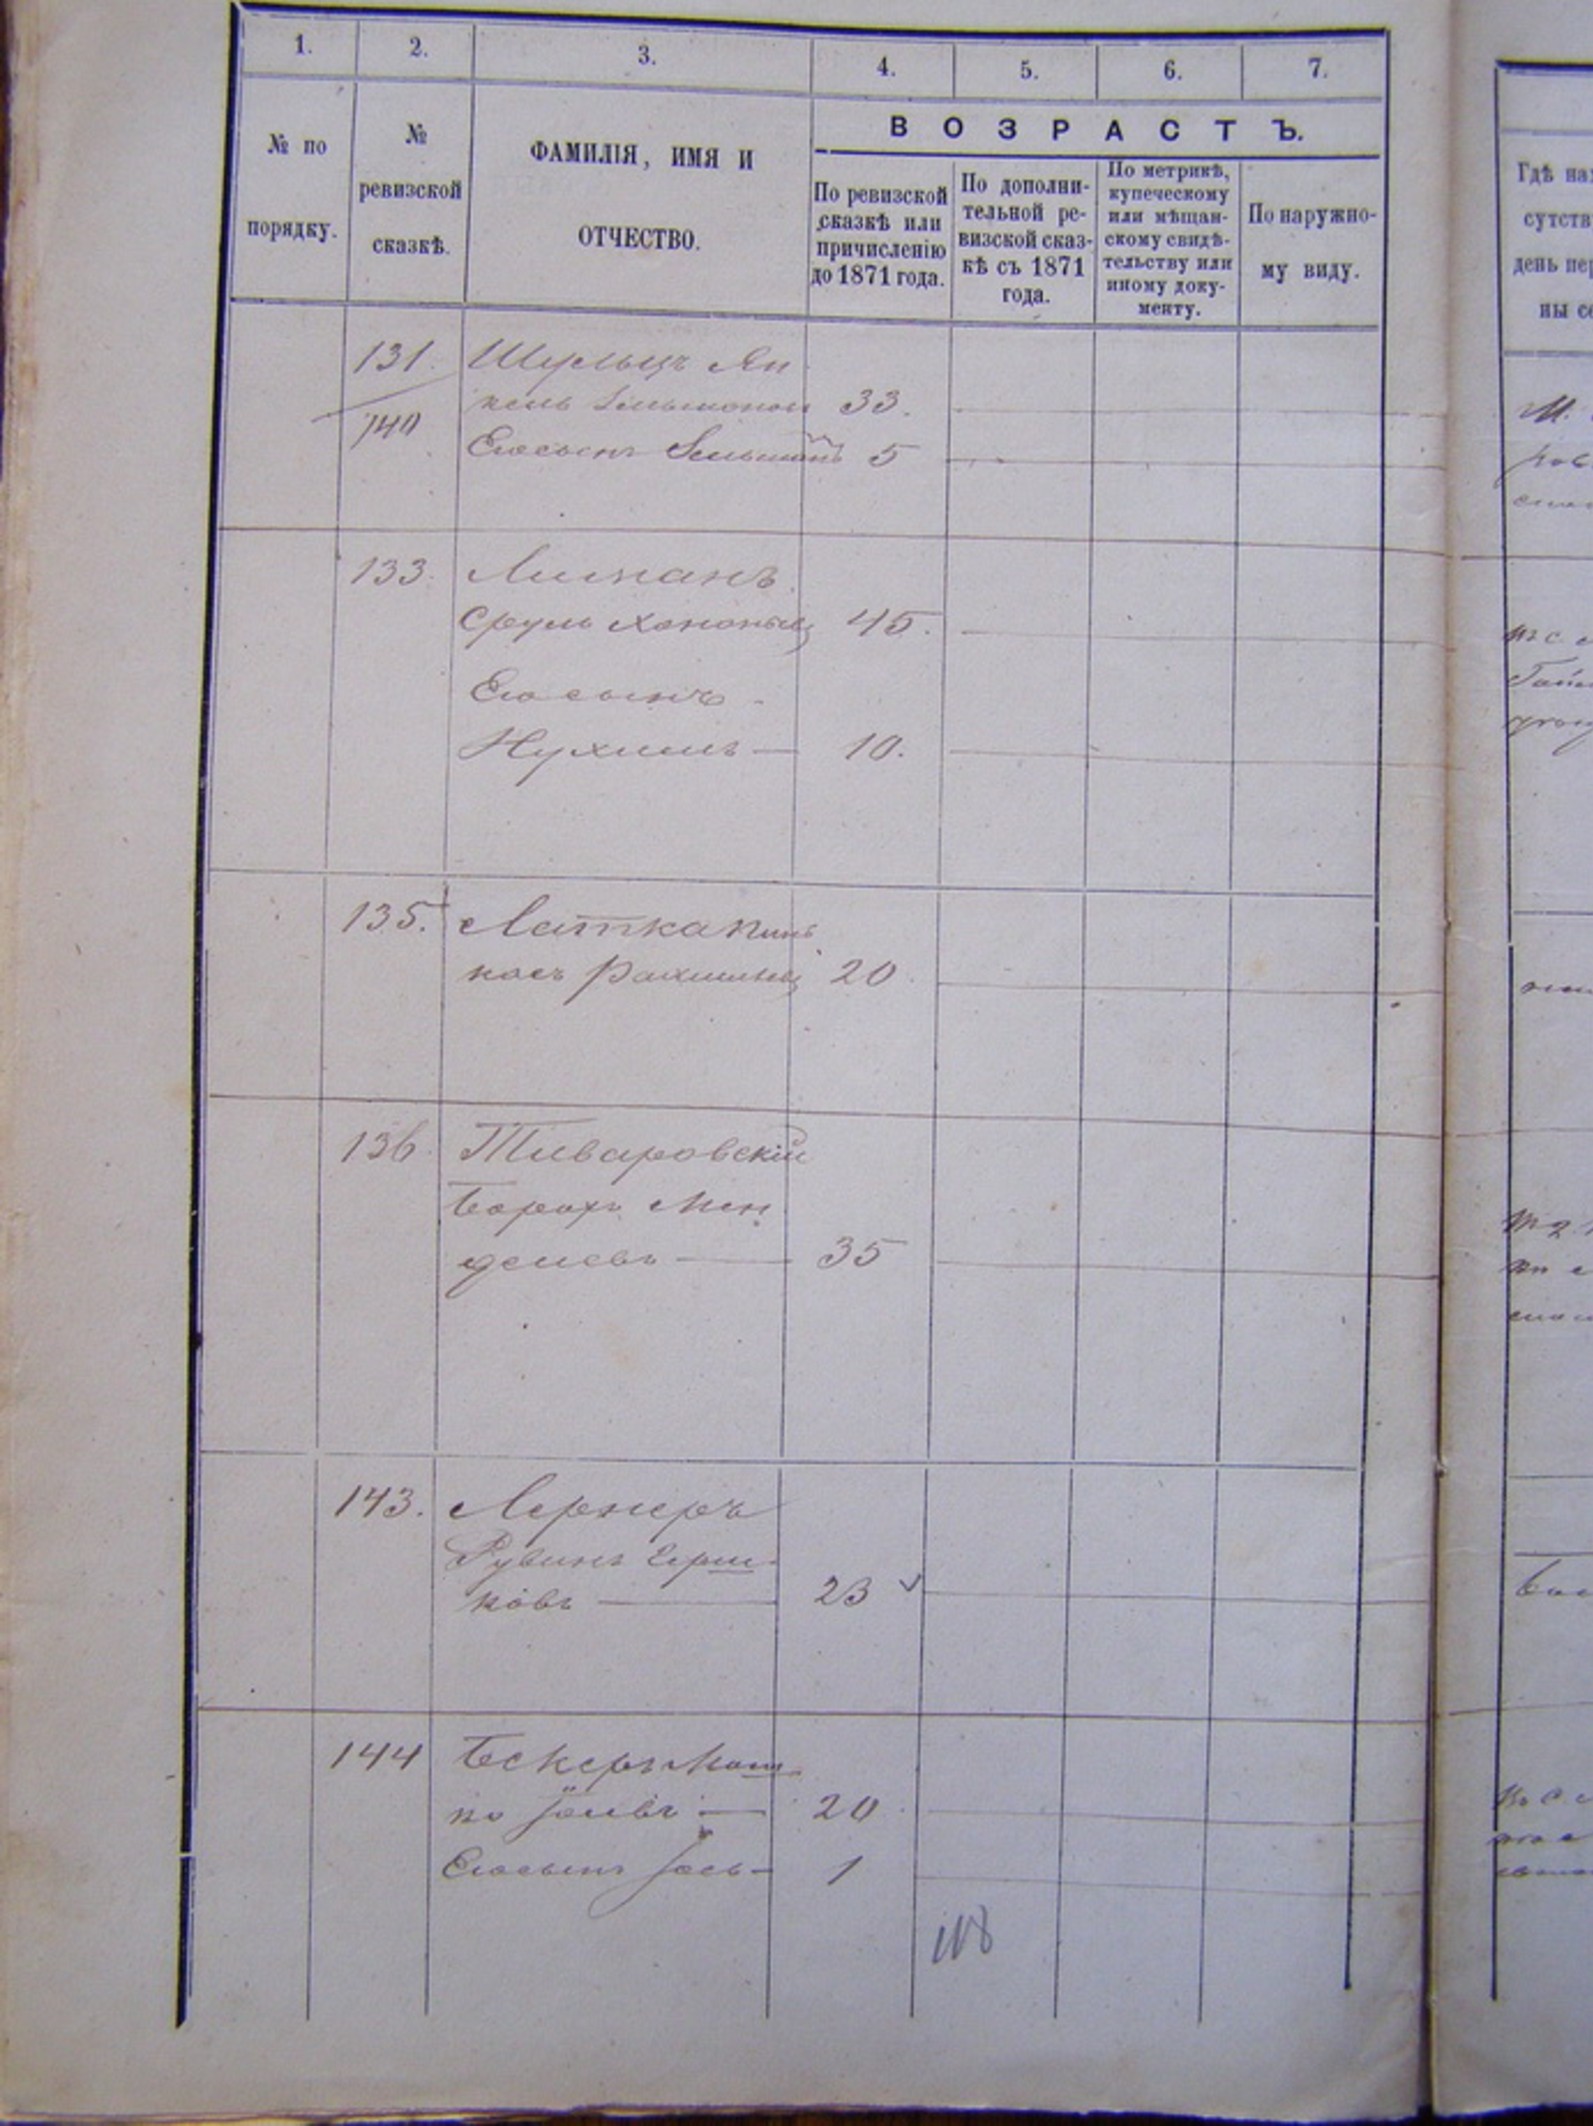 1. 2. 3. 4. 5. 6. 7.
№ по порядку.
№ ревизской сказкѣ.
ФАМИЛІЯ, ИМЯ И
ОТЧЕСТВО.
ВОЗРАСТЪ.
По ревизской
сказкѣ или
причисленію
до 1871 года.
По дополни-
тельной ре-
визской сказ-
кѣ съ 1871
года.
По метрикѣ,
купеческому
или мѣщан-
скому свидѣ-
тельству или
иному доку-
менту.
По наружно-
му виду.
131. Шульцъ Ян
140 кель 33.
Его сынъ 5
133. Лиманъ
Сруль 45.
Его сынъ
Нухимъ — 10.
135. Латка Пинь
касъ Рахмилев 20
136 Тиваровскій
Борохъ Мен
делевъ — 35
143. Лернеръ
Рувинъ Герш
ковъ — 23
144 Бекеръ Мош
ко Іосивъ — 20
Его сынъ Іось — 1
118
Гдѣ на
сутств
день пе
ны се